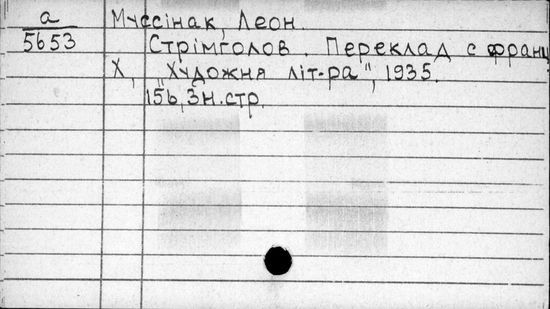 а
5653
Муссінак, Леон.
Стрімголов. Переклад с франц
Х, "Художня літ-ра", 1935.
156, 3н.стр.